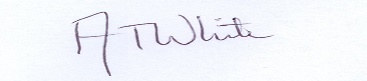 A T White